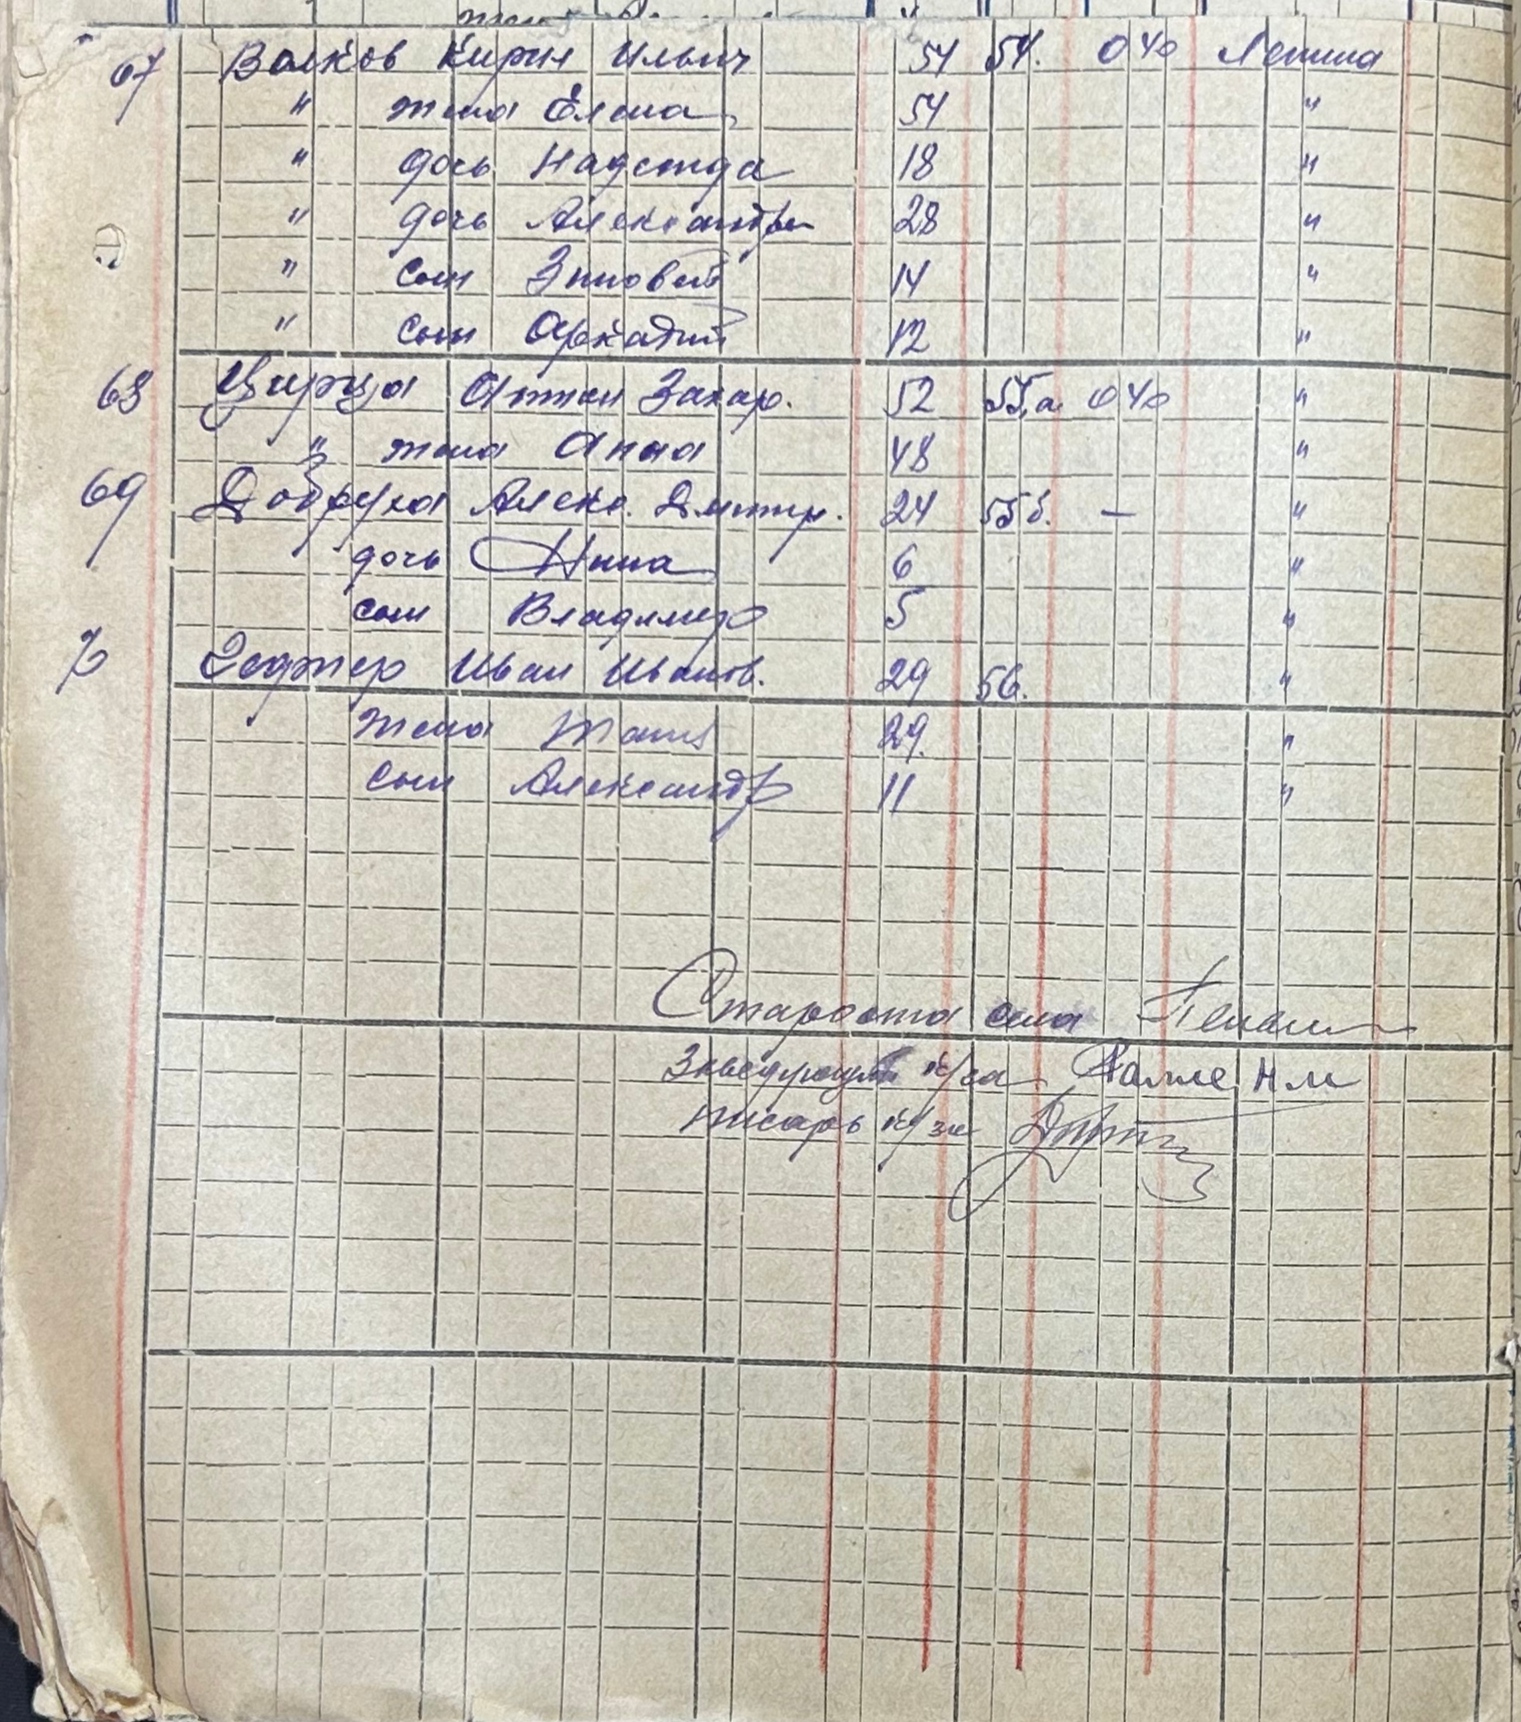 67 Волков Кирил Ильич 54 54. 040 Ленина
" жена Елена 54 "
" дочь Надежда 18 "
" дочь Александра 28 "
" сын Зиновей 14 "
" сын Аркадий 12 "
68 Цируса Антон Захар. 52 55,а 040 "
" жена Анна 48 "
69 Добруха Алекс. Дмитр. 24 55 б. — "
дочь Нина 6 "
сын Владимир 5 "
70 Иван Иванов. 29 56. "
жена 29. "
сын Александр 11 "
Староста села
к/за Н М
Писарь к/за